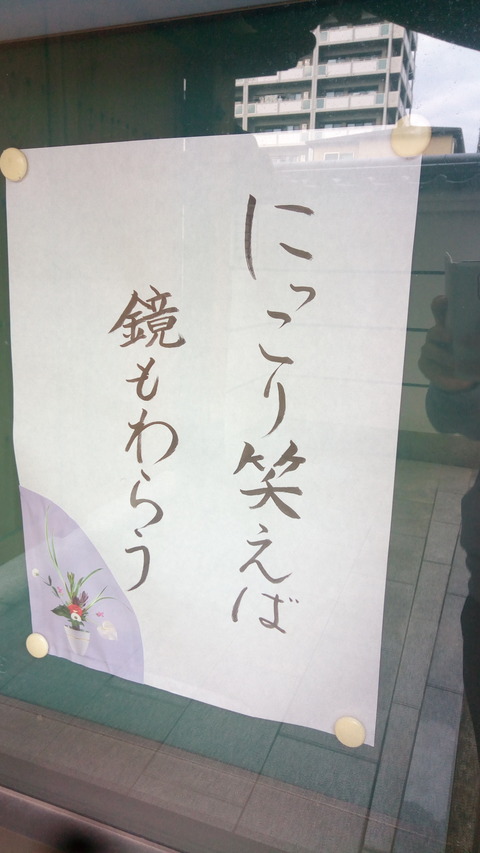 にっこり笑えば
鏡もわらう